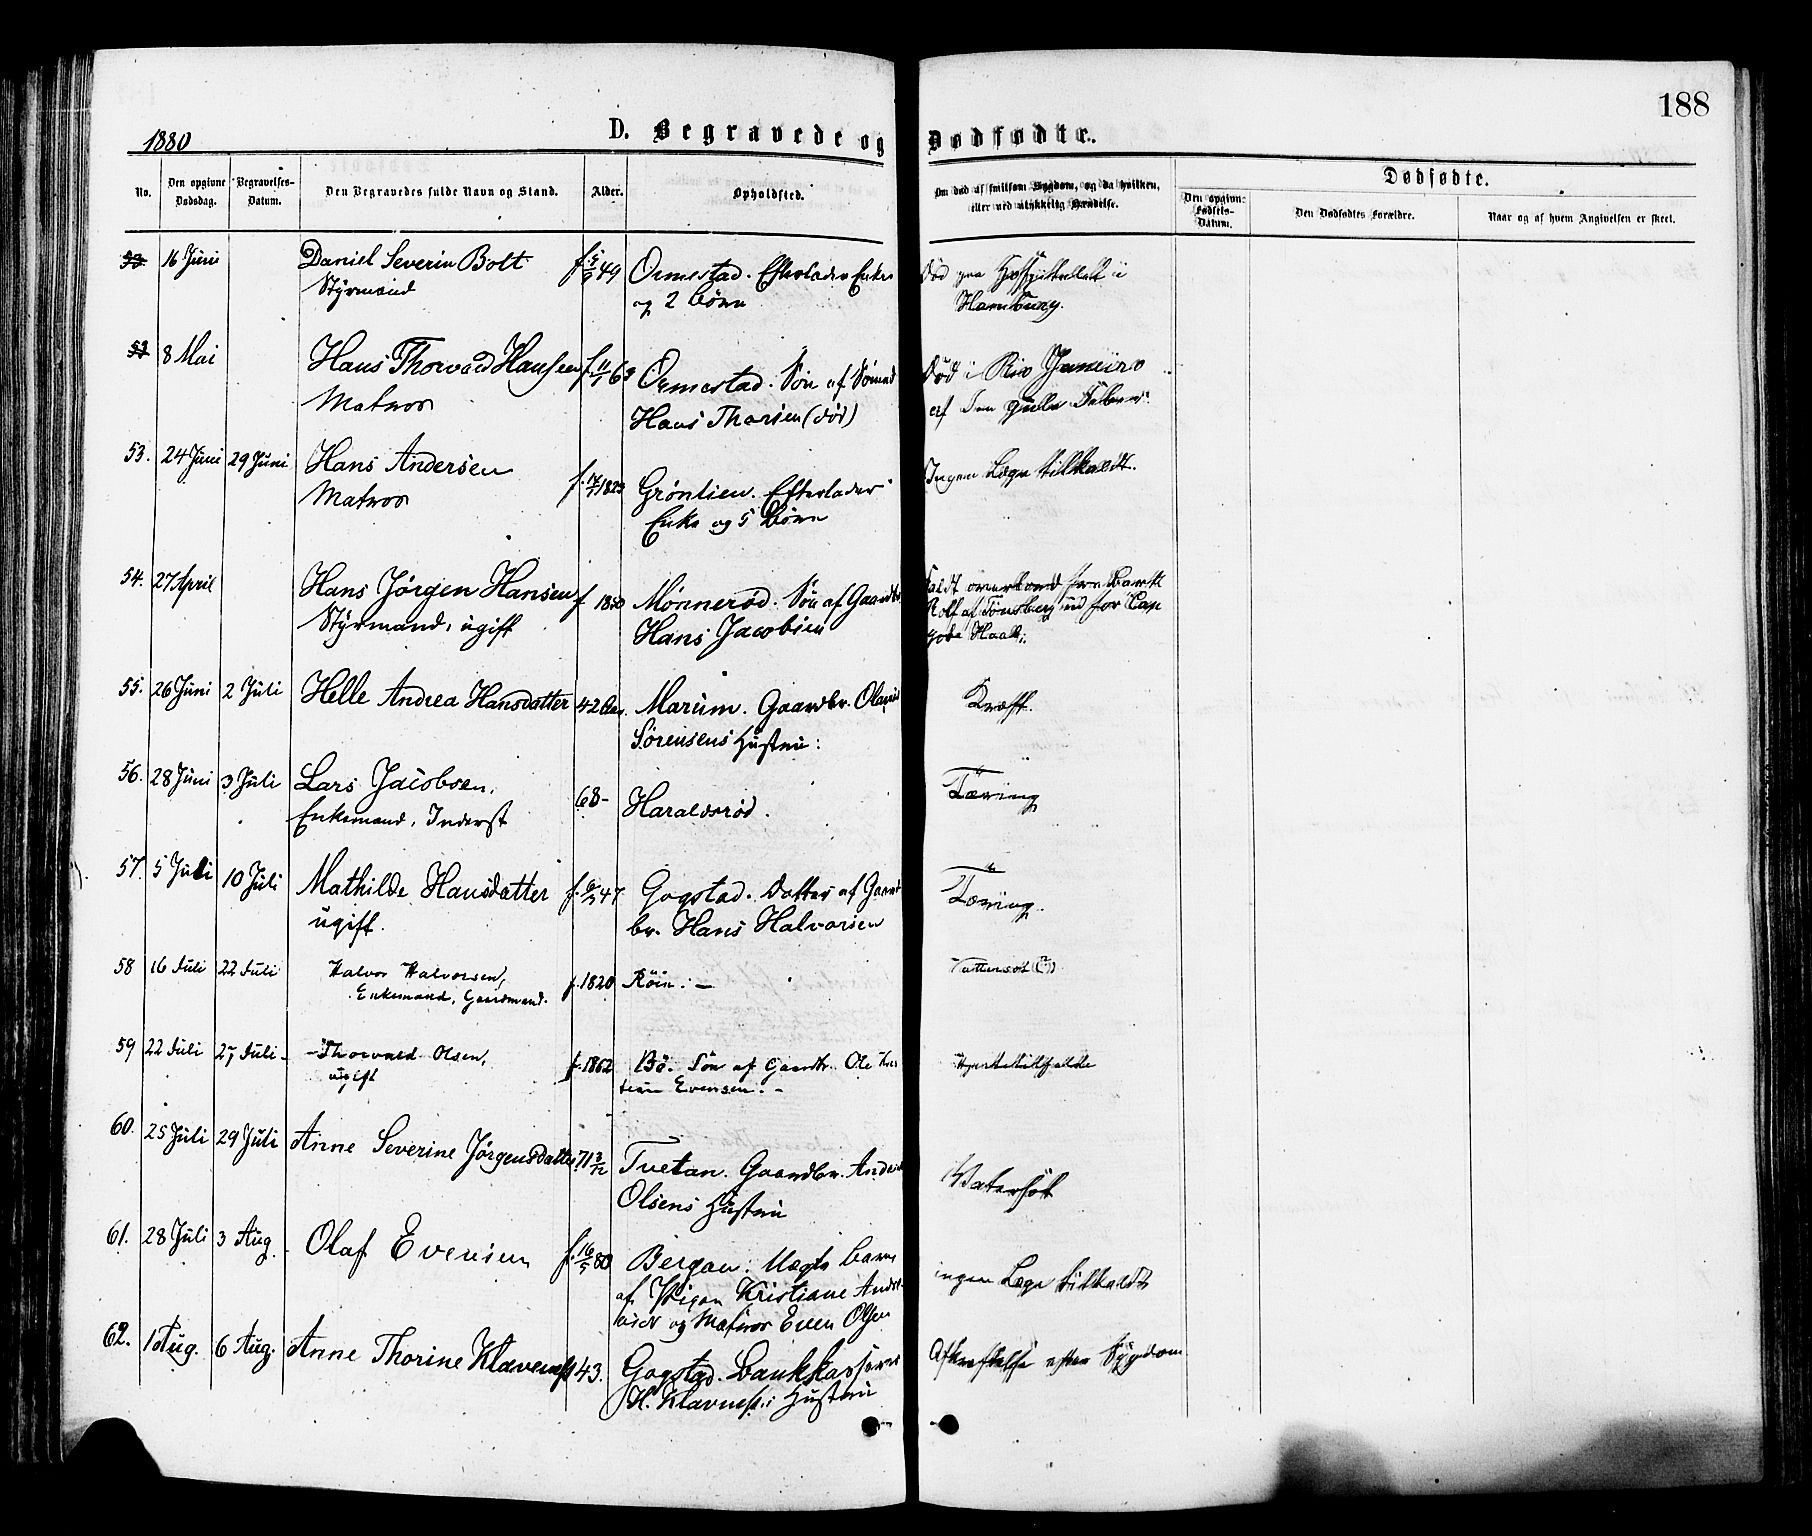 188
1880
D. Begravede og Dødfødte.
No.
Den opgivne Dødsdag.
Begravelses-Datum.
Den Begravedes fulde Navn og Stand.
Alder.
Opholdsted.
Om død af smitsom Sygdom, og da hvilken, eller ved ulykkelig Hændelse.
Dødfødte.
Den opgivne Fødsels-Datum.
Den Dødfødtes Forældre.
Naar og af hvem Angivelsen er skeet.
16 Juni Daniel Severin Bolt f. 49 Ormestad. Efterlader Enke Død paa Hospitalet i
Styrmand og 2 Børn Hamburg.
53 8 Mai Hans Thorvald Hansen f. 11/1 63 Ormestad. Søn af Sømand Død i Rio Janeiro
Matros Hans Thorsen (død) af den gule Feber.
53. 24 Juni 29 Juni Hans Andersen f. 1823 Grøntien. Efterlader Ingen Læge tilkaldt.
Matros Enke og 5 Børn
54. 27 April Hans Jørgen Hansen f 1850 Mønnerød. Søn af Gaardbr Faldt overbord fra Bark
Styrmand, ugift Hans Jacobsen Rolf af Tønsberg ud for Cap
gode Haab.
55. 26 Juni 2 Juli Helle Andrea Hansdatter 42 Aar. Marum. Gaardbr. Olaus Kræft.
Sørensens Hustru.
56. 28 Juni 3 Juli Lars Jacobsen. 68- Haraldsrød. Tæring
Enkemand, Inderst
57. 5 Juli 10 Juli Mathilde Hansdatter f. 47 Gogstad. Datter af Gaard Tæring.
ugift. br. Hans Halvorsen
58 16 Juli 22 Juli Halvor Halvorsen, f. 1820 Røin. - Vattersot (?)
Enkemand, Gaardmand.
59 22 Juli 27 Juli - Thorvald Olsen, f. 1862 Bø. Søn af Gaardbr. Ole Kris
ugift tian Evensen. - Hjertetilfælde
60. 25 Juli 29 Juli Anne Severine Jørgensdatter 71 3/12 Tvetan. Gaardbr. Anders Vatersot
Olsens Hustru
61. 28 Juli 3 Aug. Olaf Evensen f. 16/5 80 Bergan. Uægte barn ingen Læge tilkaldt
af Pigen Kristiane Andr-
og Matros Even Olsen
62. 1 Aug. 6 Aug. Anne Thorine Klaveness 43. Gogstad. Bankkasserer Afkræftelse efter Sygdom
H. Klavness's Hustru